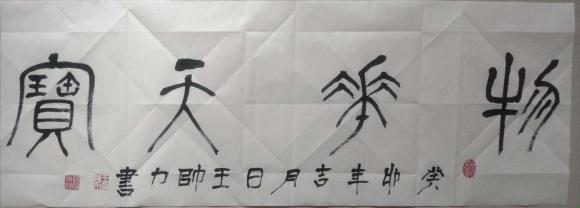 物華天寶
癸卯年吉月日王帥力書